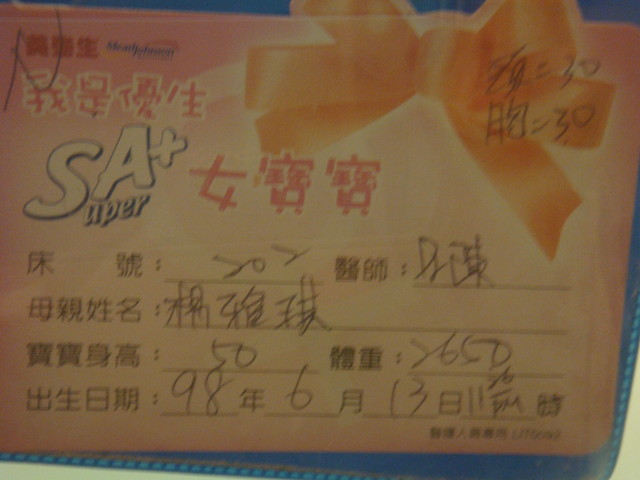 美強生 MeadJohnson
我是優生
頭=30
胸=30
SA+
uper
女寶寶
床 號：202 醫師：
母親姓名：楊雅琪
寶寶身高：50 體重：2650
出生日期：98年6月13日11 26 PM 時
醫護人員專用